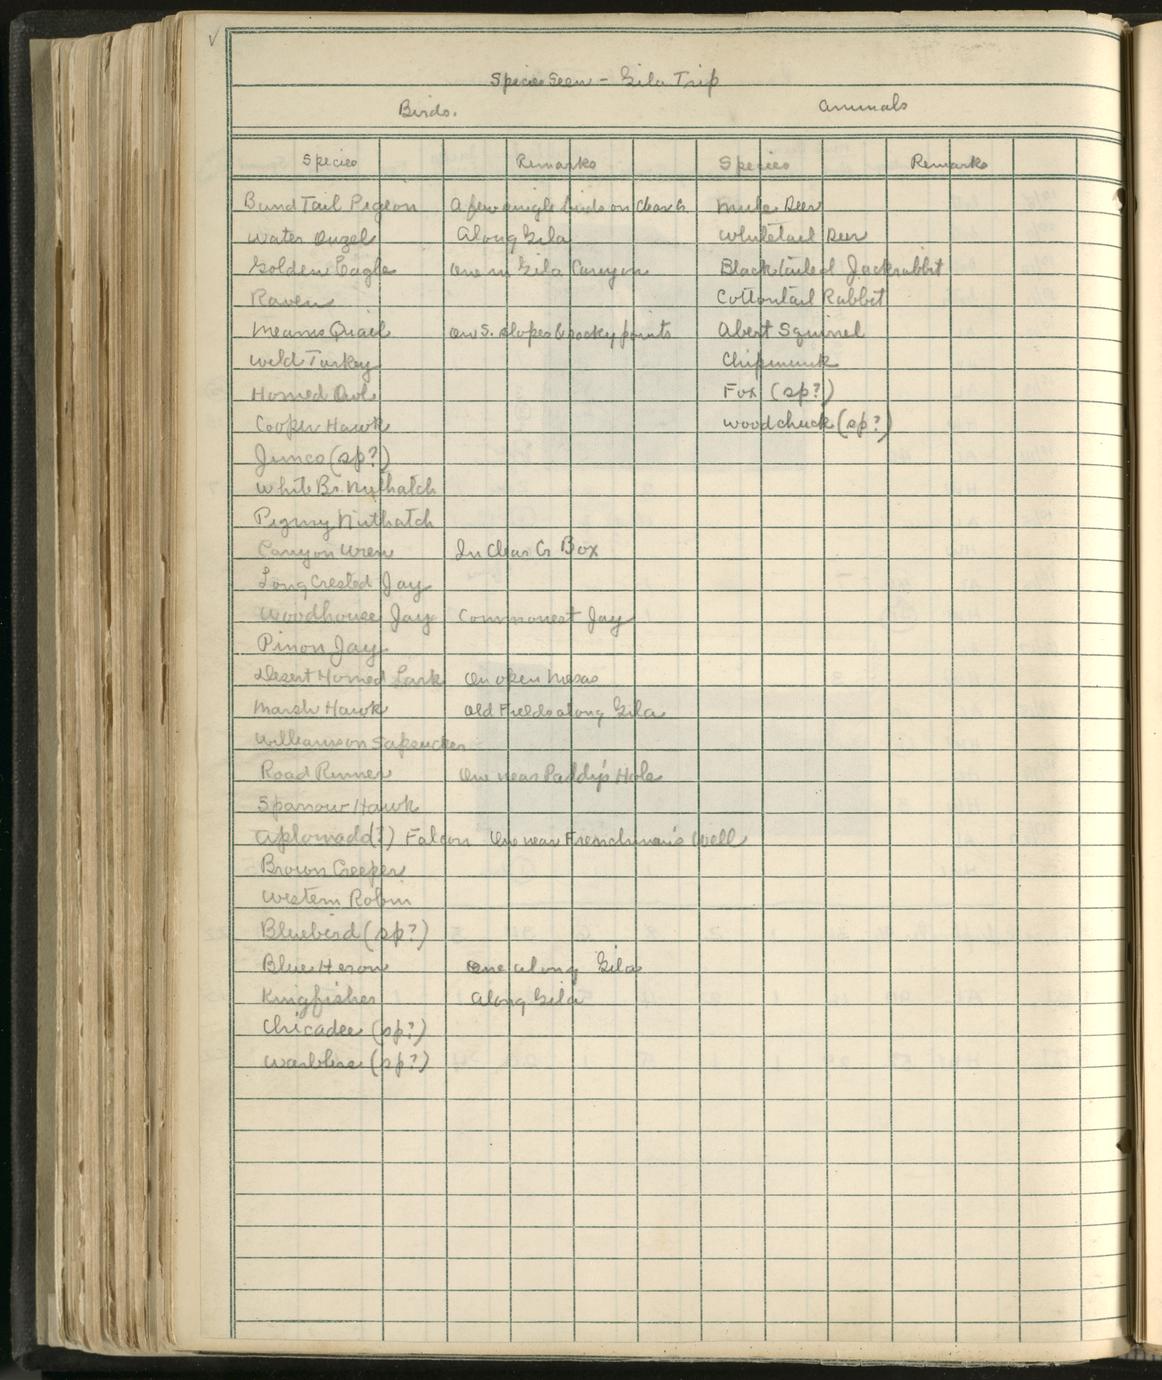 Species Seen - Gila Trip
Birds. Animals
Species Remarks Species Remarks
Band Tail Pigeon A few single birds on Clear Cr. Mule Deer
Water Ouzel Along Gila Whitetail Deer
Golden Eagle One in Gila Canyon Blacktailed Jackrabbit
Raven Cottontail Rabbit
Mearns Quail On S. slopes & rocky points Abert Squirrel
Wild Turkey Chipmunk
Horned Owl Fox (sp?)
Cooper Hawk Woodchuck (sp?)
Junco (sp?)
White Br. Nuthatch
Pigmy Nuthatch
Canyon Wren In Clear Cr Box
Long Crested Jay
Woodhouse Jay Commonest Jay
Pinon Jay
Desert Horned Lark On open Mesas
Marsh Hawk Old Fields along Gila
Williamson Sapsucker
Road Runner One near Paddy's Hole
Sparrow Hawk
Aplomado(?) Falcon One near Frenchman's Well
Brown Creeper
Western Robin
Bluebird (sp?)
Blue Heron One along Gila
Kingfisher Along Gila
Chicadee (sp?)
Warblers (sp?)